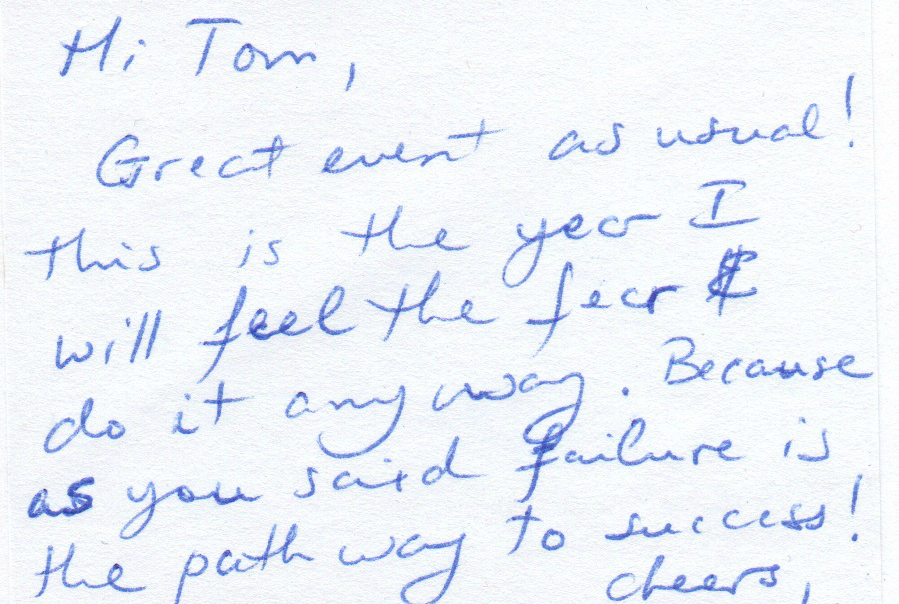 Hi Tom,
Great event as usual!
this is the year I
will feel the fear &
do it anyway. Because
as you said failure is
the path way to success!
cheers,